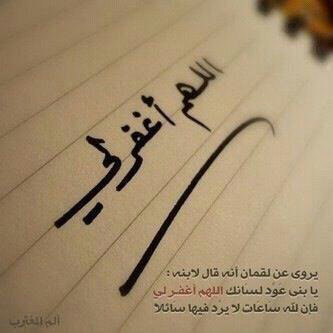 اللهم أغفر لي
يروى عن لقمان أنه قال لابنه :
يا بنى عوّد لسانك اللهم أغفر لي
فإن لله ساعات لا يرد فيها سائلا
ألم المغترب